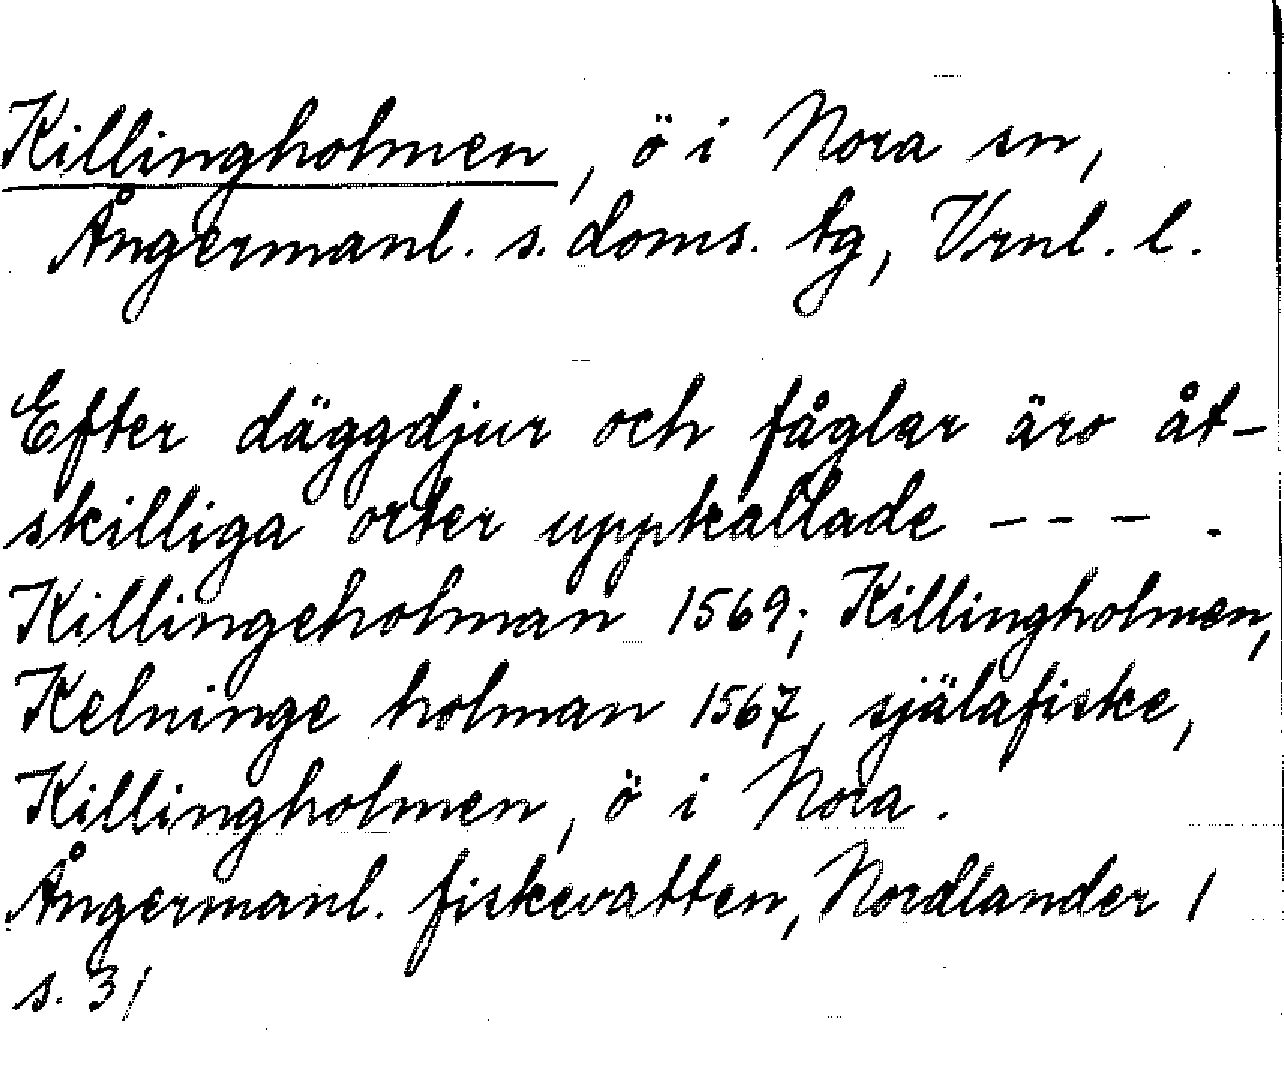 Killingholmen, ö i Nora sn,
Ångermanl. s. doms. tg, Vrnl. l.
Efter däggdjur och fåglar äro åt-
skilliga orter uppkallade - - - .
Killingeholman 1569; Killingholmen,
Kelninge holman 1567, själafiske,
Killingholmen, ö i Nora.
Ångermanl. fiskevatten, Nordlander 1
s. 31